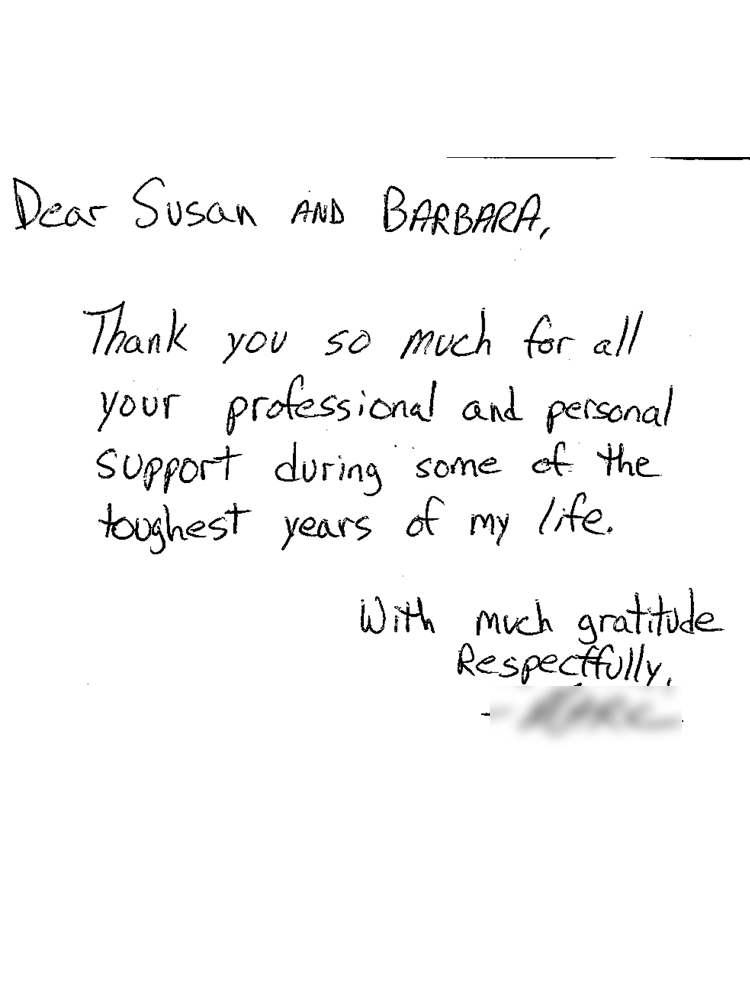 Dear Susan AND BARBARA,
Thank you so much for all
your professional and personal
support during some of the
toughest years of my life.
With much gratitude
Respectfully,
-